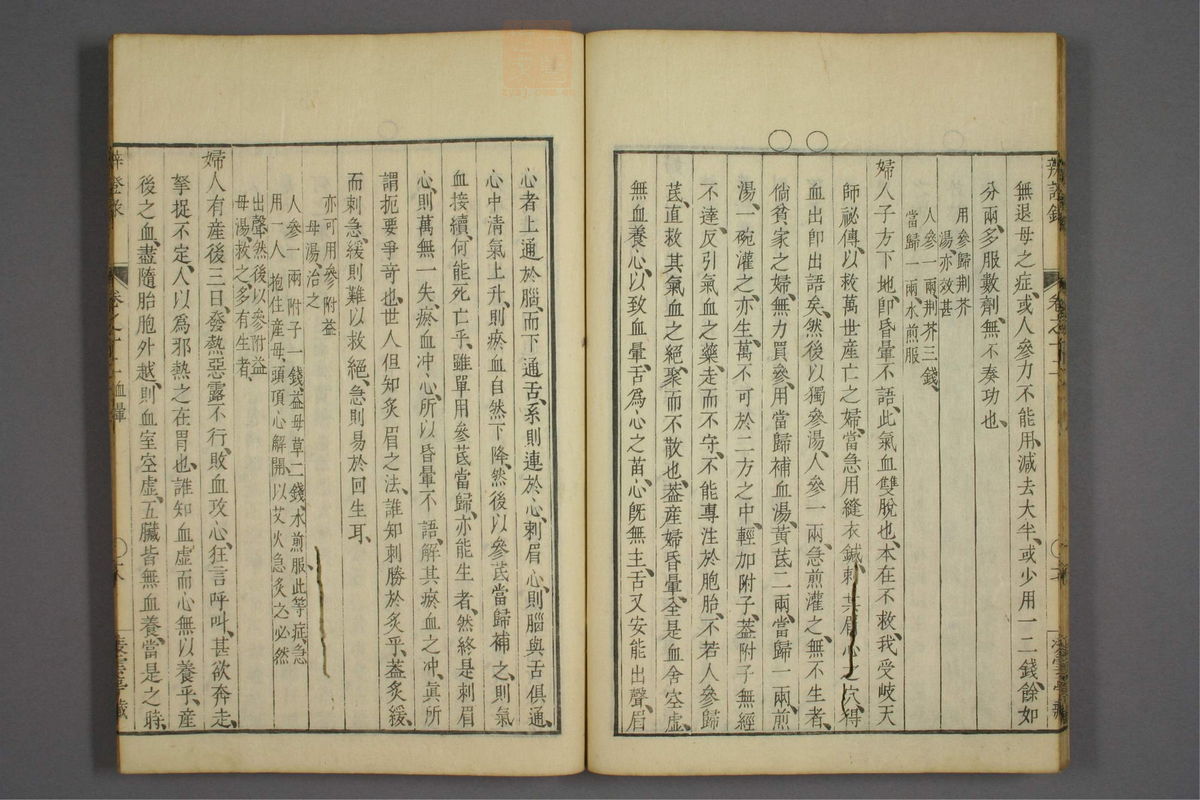 無退母之症、或人參力不能用、減去大半、或少用一二錢、餘如
分兩、多服數劑、無不奏功也、
用參歸荊芥
湯亦效甚
人參一兩荊芥三錢、
當歸一兩水煎服
婦人子方下地、即昏暈不語、此氣血雙脫也、本在不救、我受岐天
師祕傳、以救萬世產亡之婦、當急用縫衣鍼刺其眉心之穴、得
血出卽出語矣、然後以獨參湯、人參一兩、急煎灌之、無不生者、
倘貧家之婦、無力買參、用當歸補血湯、黃芪二兩、當歸一兩、煎
湯、一碗灌之、亦生、萬不可於二方之中、輕加附子、蓋附子無經
不達、反引氣血之藥、走而不守、不能專注於胞胎、不若人參歸
芪、直救其氣血之絕、聚而不散也、蓋產婦昏暈、全是血舍空虛、
無血養心、以致血暈、舌爲心之苗、心旣無主、舌又安能出聲、眉
心者上通於腦、而下通舌、系則連於心、刺眉心、則腦與舌俱通、
心中清氣上升、則瘀血自然下降、然後以參芪當歸補之、則氣
血接續、何能死亡乎、雖單用參芪當歸、亦能生者、然終是刺眉
心、則萬無一失、瘀血冲心、所以昏暈不語、解其瘀血之冲、眞所
謂扼要爭奇也、世人但知炙眉之法、誰知刺勝於炙乎、蓋炙緩、
而刺急、緩則難以救絕、急則易於回生耳、
亦可用參附益
母湯治之
人參一兩附子一錢、益母草二錢、水煎服、此等症、急
用一人抱住產母、頭頂心解開、以艾火急炙之、必然
出聲、然後以參附益
母湯救之、多有生者、
婦人有產後三日、發熱惡露不行、敗血攻心、狂言呼叫、甚欲奔走、
拏捉不定、人以爲邪熱之在胃也、誰知血虛而心無以養乎、產
後之血、盡隨胎胞外越、則血室空虛、五臟皆無血養、當是之時、